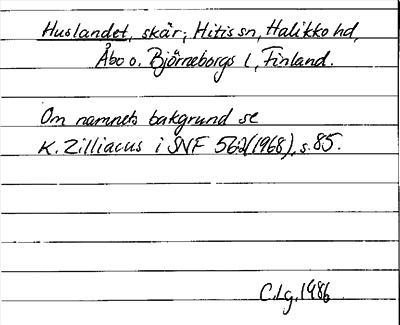 Huslandet, skär; Hitis sn, Halikko hd,
Åbo o. Björneborgs l, Finland.
Om namnets bakgrund se
K. Zilliacus i SNF 562(1968), s. 85.
C.Lg. 1986